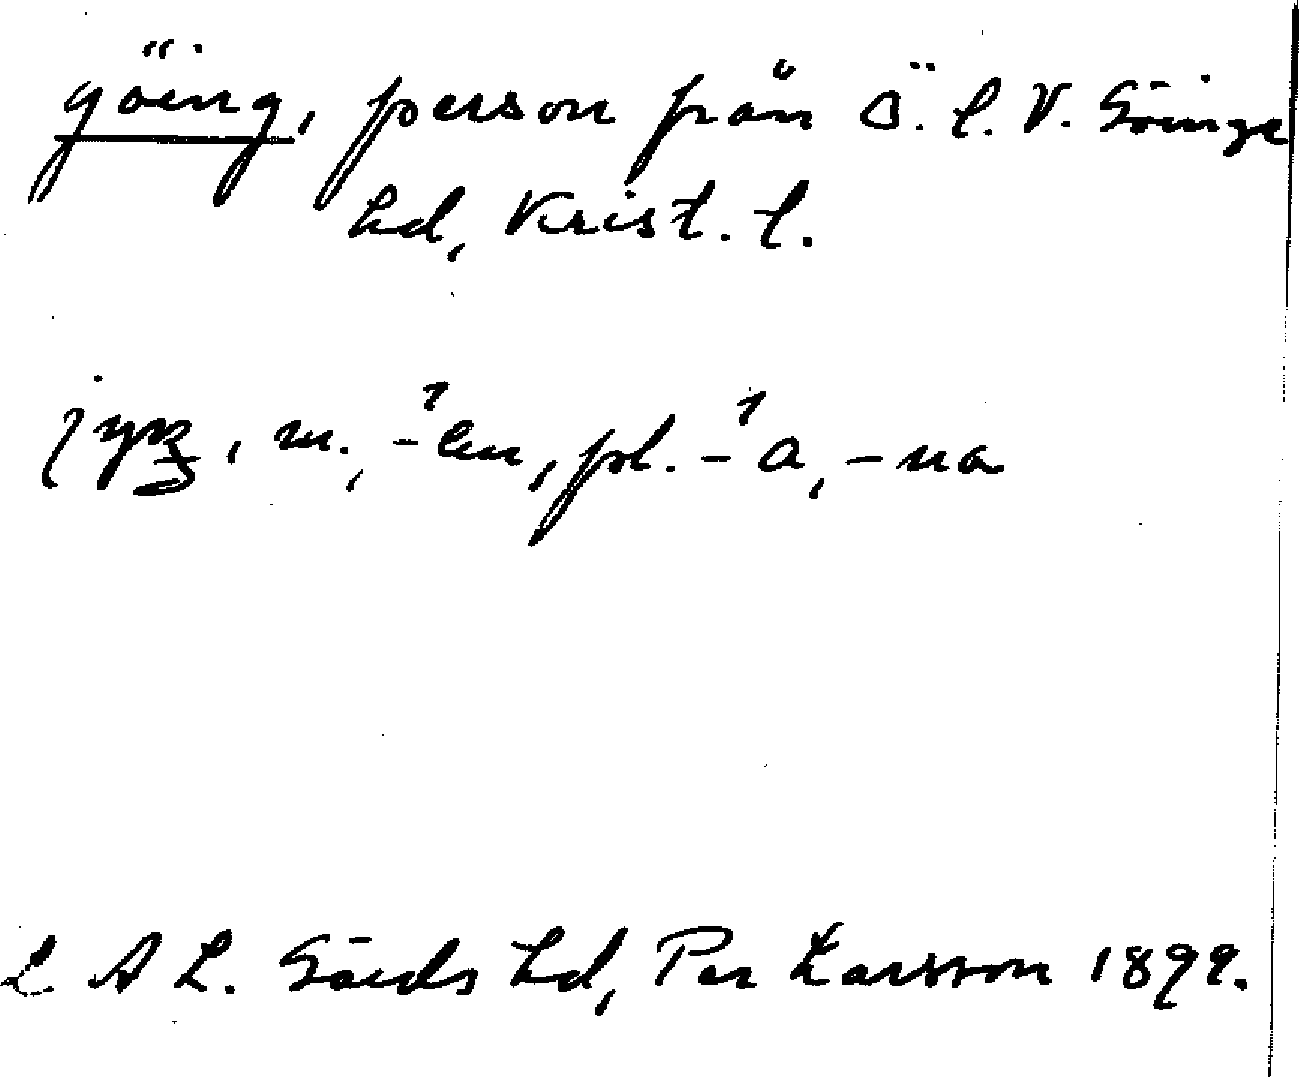 göing, person från Ö. l. V. Göinge
hd, Krist. l.
m., -en, pl. -a, -na
L A L. Gärds hd, Per Larsson 1899.